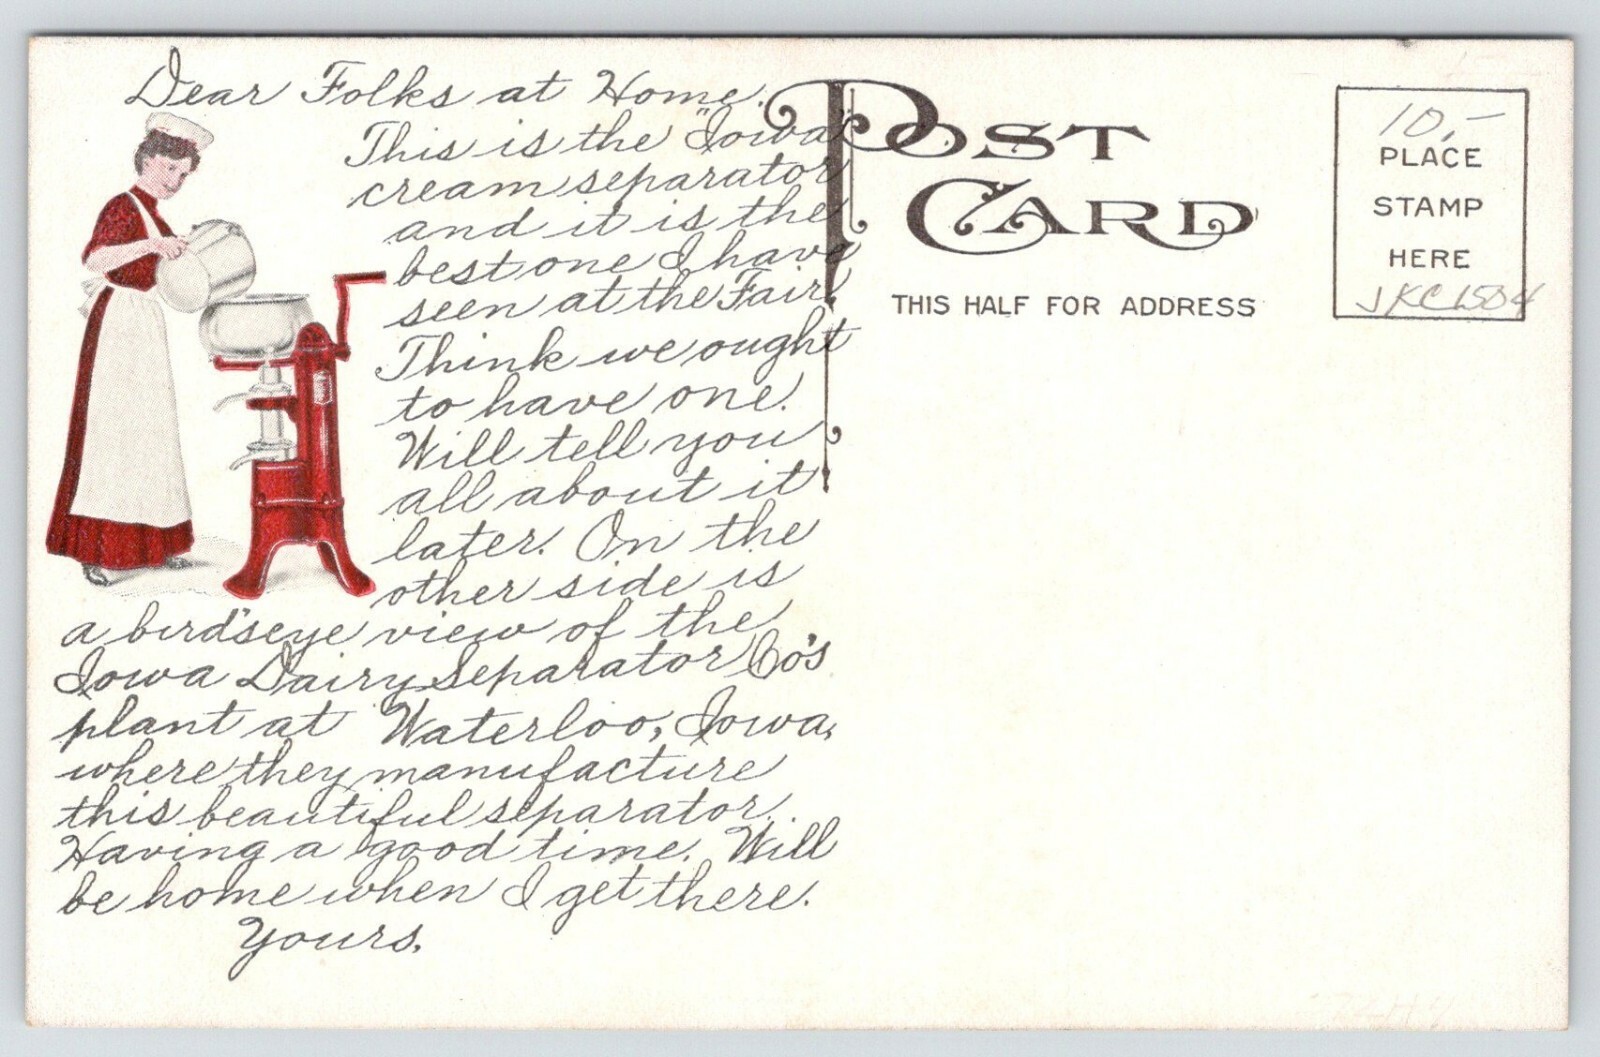 Dear Folks at Home.
This is the "Iowa"
cream separator
and it is the
best one I have
seen at the Fair.
Think we ought
to have one.
Will tell you
all about it
later. On the
other side is
a bird'seye view of the
Iowa Dairy Separator Co's
plant at Waterloo, Iowa,
where they manufacture
this beautiful separator.
Having a good time. Will
be home when I get there.
Yours,
POST
CARD
THIS HALF FOR ADDRESS
10,-
PLACE
STAMP
HERE